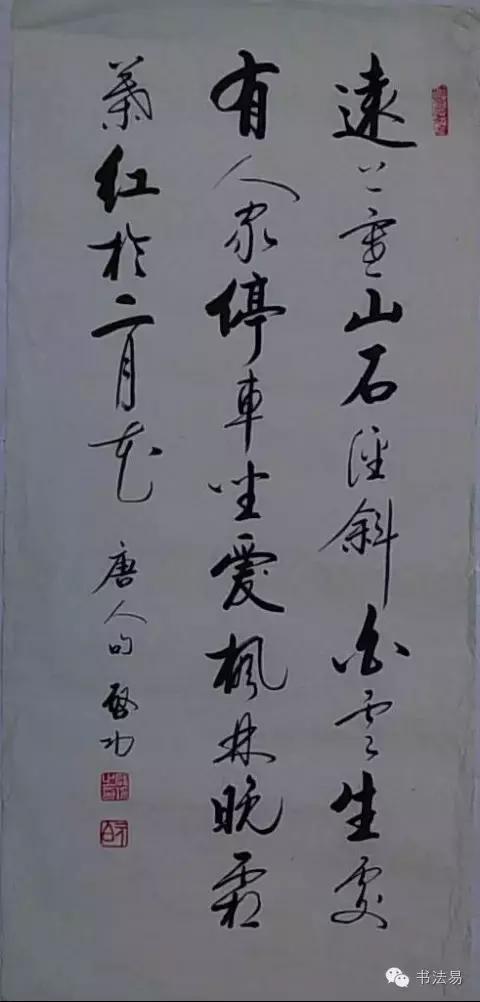 遠上寒山石徑斜白雲生處
有人家停車坐愛楓林晚霜
葉紅於二月花 唐人句 啓功
书法易